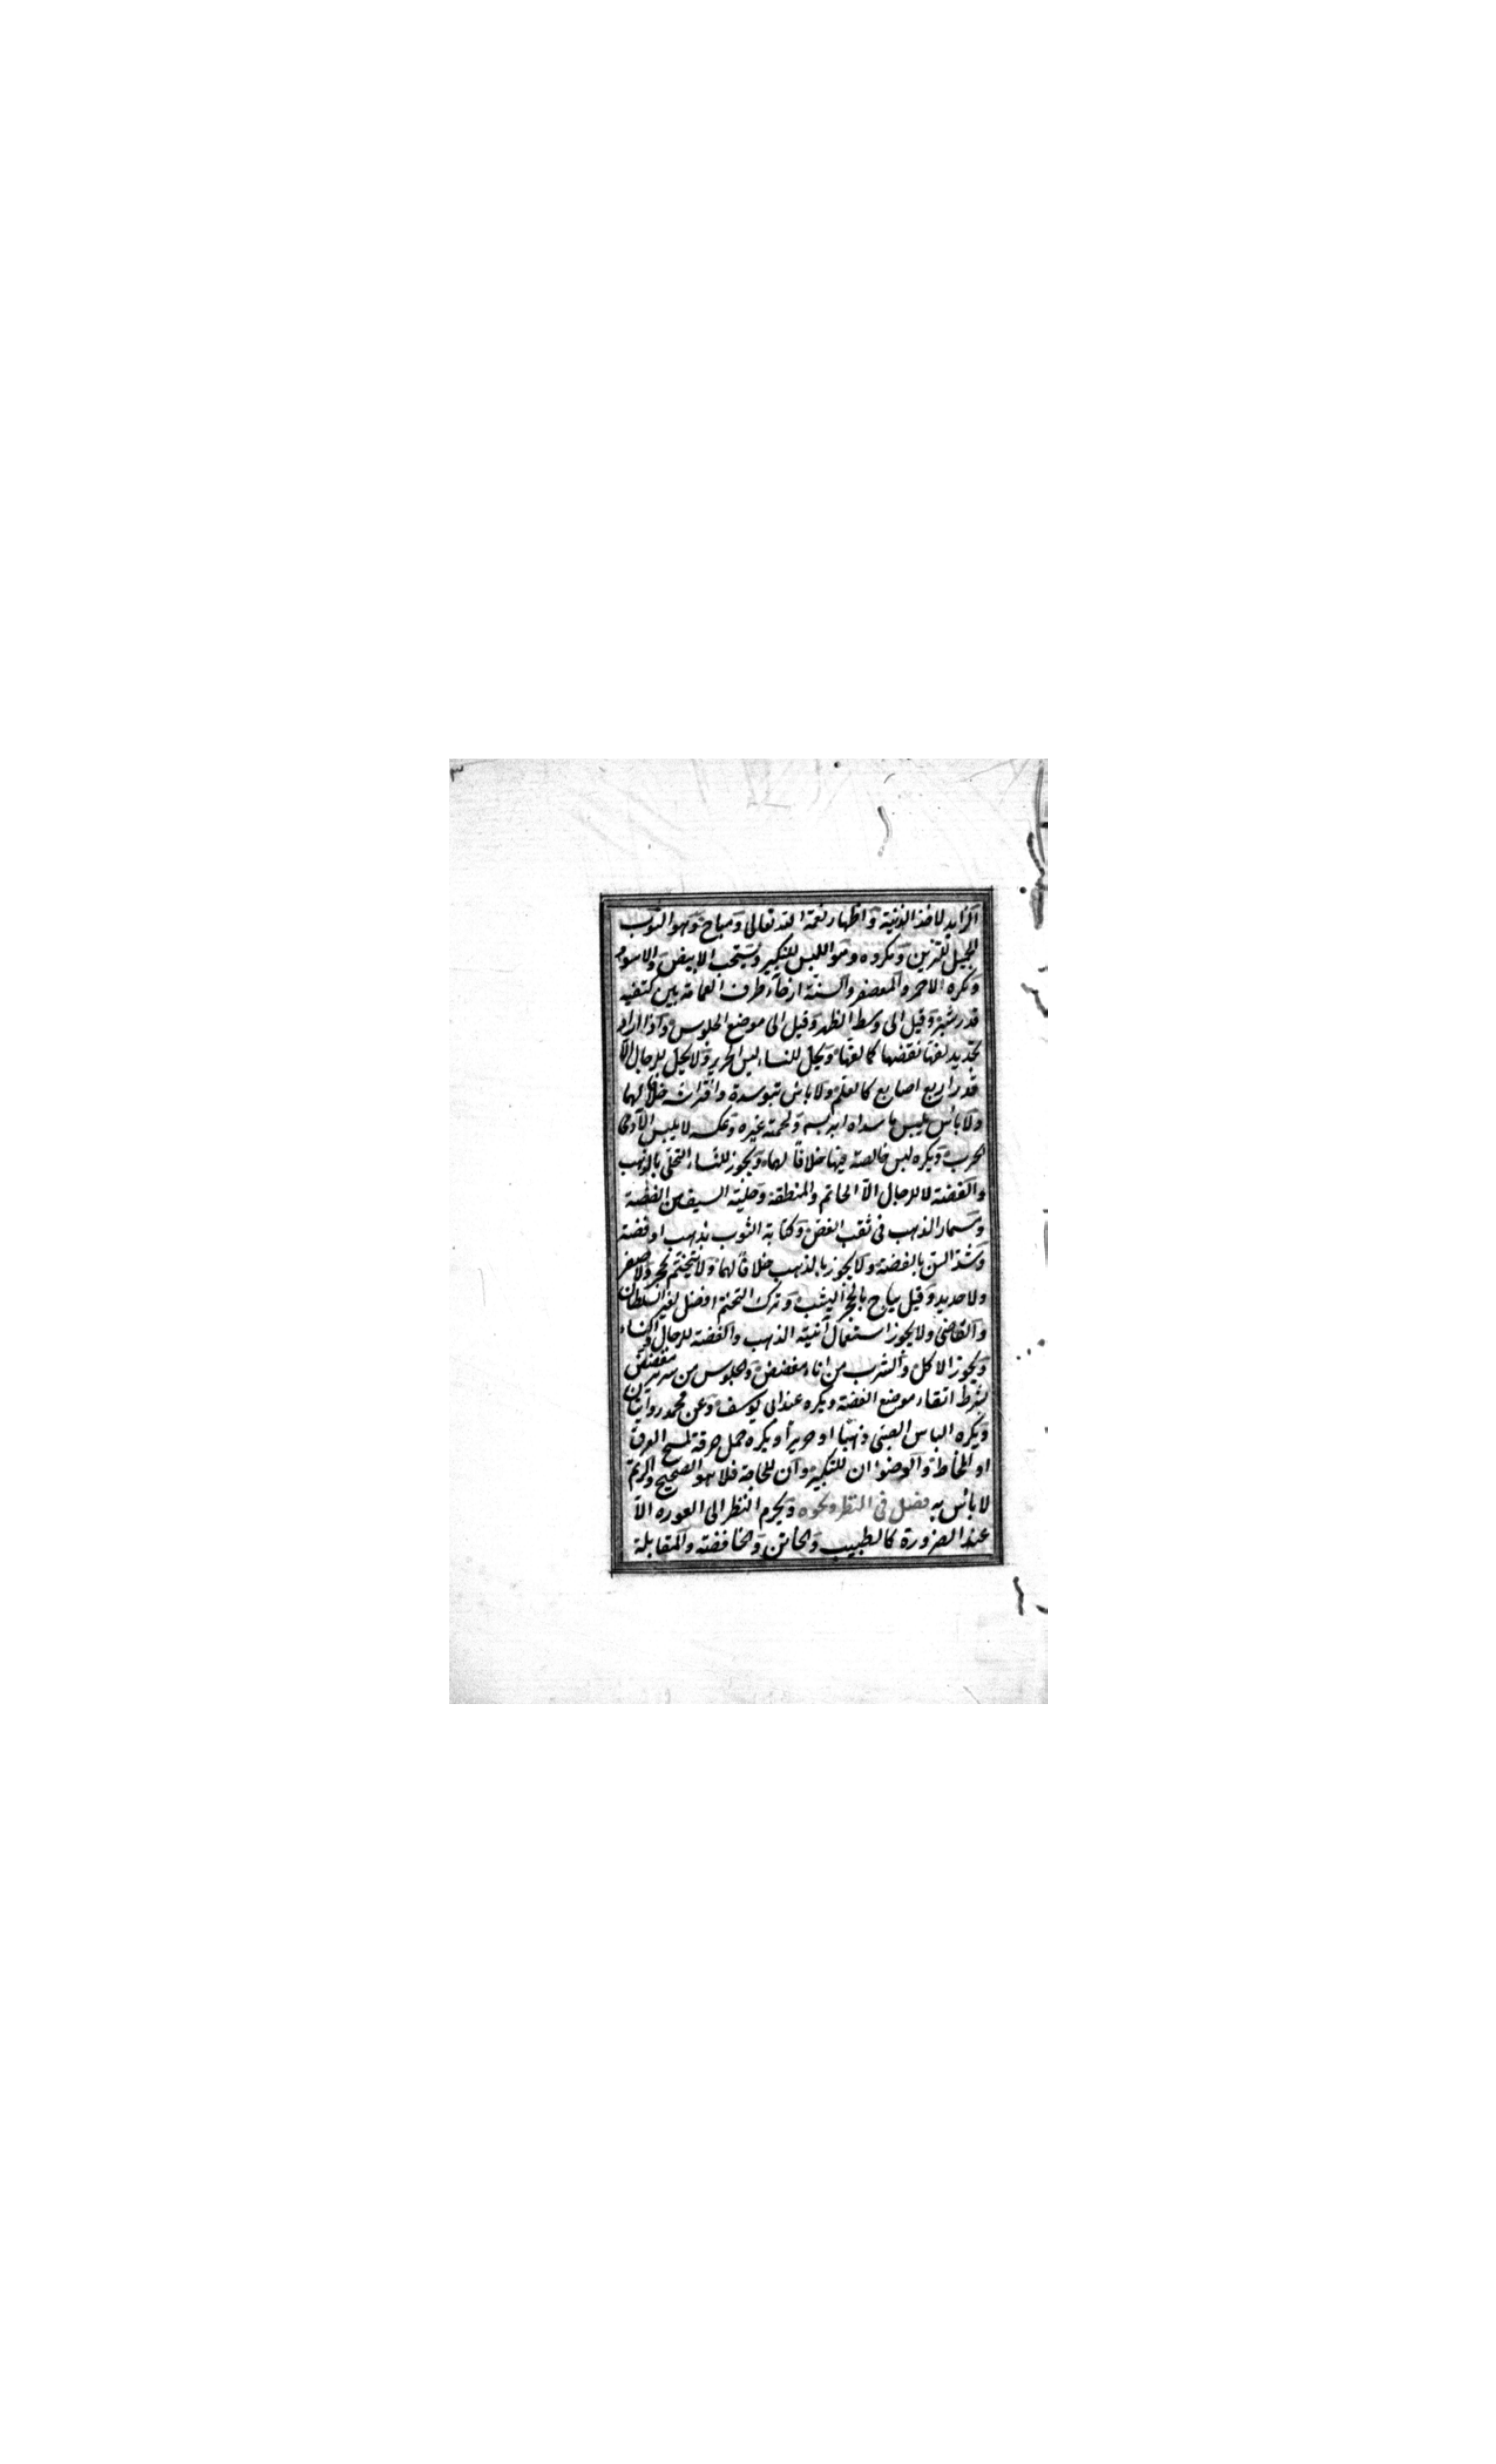 الزايد لاخذ الزينة واظهار نعمة الله تعالى ومباح وهو الثوب
الجميل للتزين ومكروه وهو اللبس للتكبر ويستحب الابيض والاسود
ويكره الاحمر والمعصفر والسنة ارخاء طرف العمامة بين كتفيه
قدر شبر وقيل الى وسط الظهر وقيل الى موضع الجلوس واذا اراد
تجديد لفها نقضها كما لفها ويحل للنساء لبس الحرير ولا يحل للرجال الا
قدر اربع اصابع كالعلم ولا باس بتوسده وافتراشه خلافا لهما
ولا بأس بلبس ما سداه ابريسم ولحمته غيره وعكسه لا يلبس الا فى
الحرب ويكره لبس خالصه فيها خلافا لهما ويجوز للنساء التحلى بالذهب
والفضة لا للرجال الا الخاتم والمنطقة وحلية السيف من الفضة
ومسمار الذهب فى ثقب الفص وكتابة الثوب بذهب او فضة
وشد السن بالفضة ولا يجوز بالذهب خلافا لهما ولا يتختم بحجر ولا صفر
ولا حديد وقيل يباح بالحجر اليشب وترك التختم افضل لغير السلطان
والقاضى ولا يجوز استعمال آنية الذهب والفضة للرجال والنساء
ويجوز الاكل والشرب من اناء مفضض والجلوس من سرير مفضض
بشرط اتقاء موضع الفضة ويكره عند ابى يوسف وعن محمد روايتان
ويكره الباس الصبى ذهبا او حريرا ويكره حمل خرقة لمسح العرق
او المخاط والوضوء ان للتكبر وان للحاجة فلا هو الصحيح والرتم
لا بأس به فصل فى النظر ونحوه ويحرم النظر الى العورة الا
عند الضرورة كالطبيب والخاتن والخافضة والقابلة